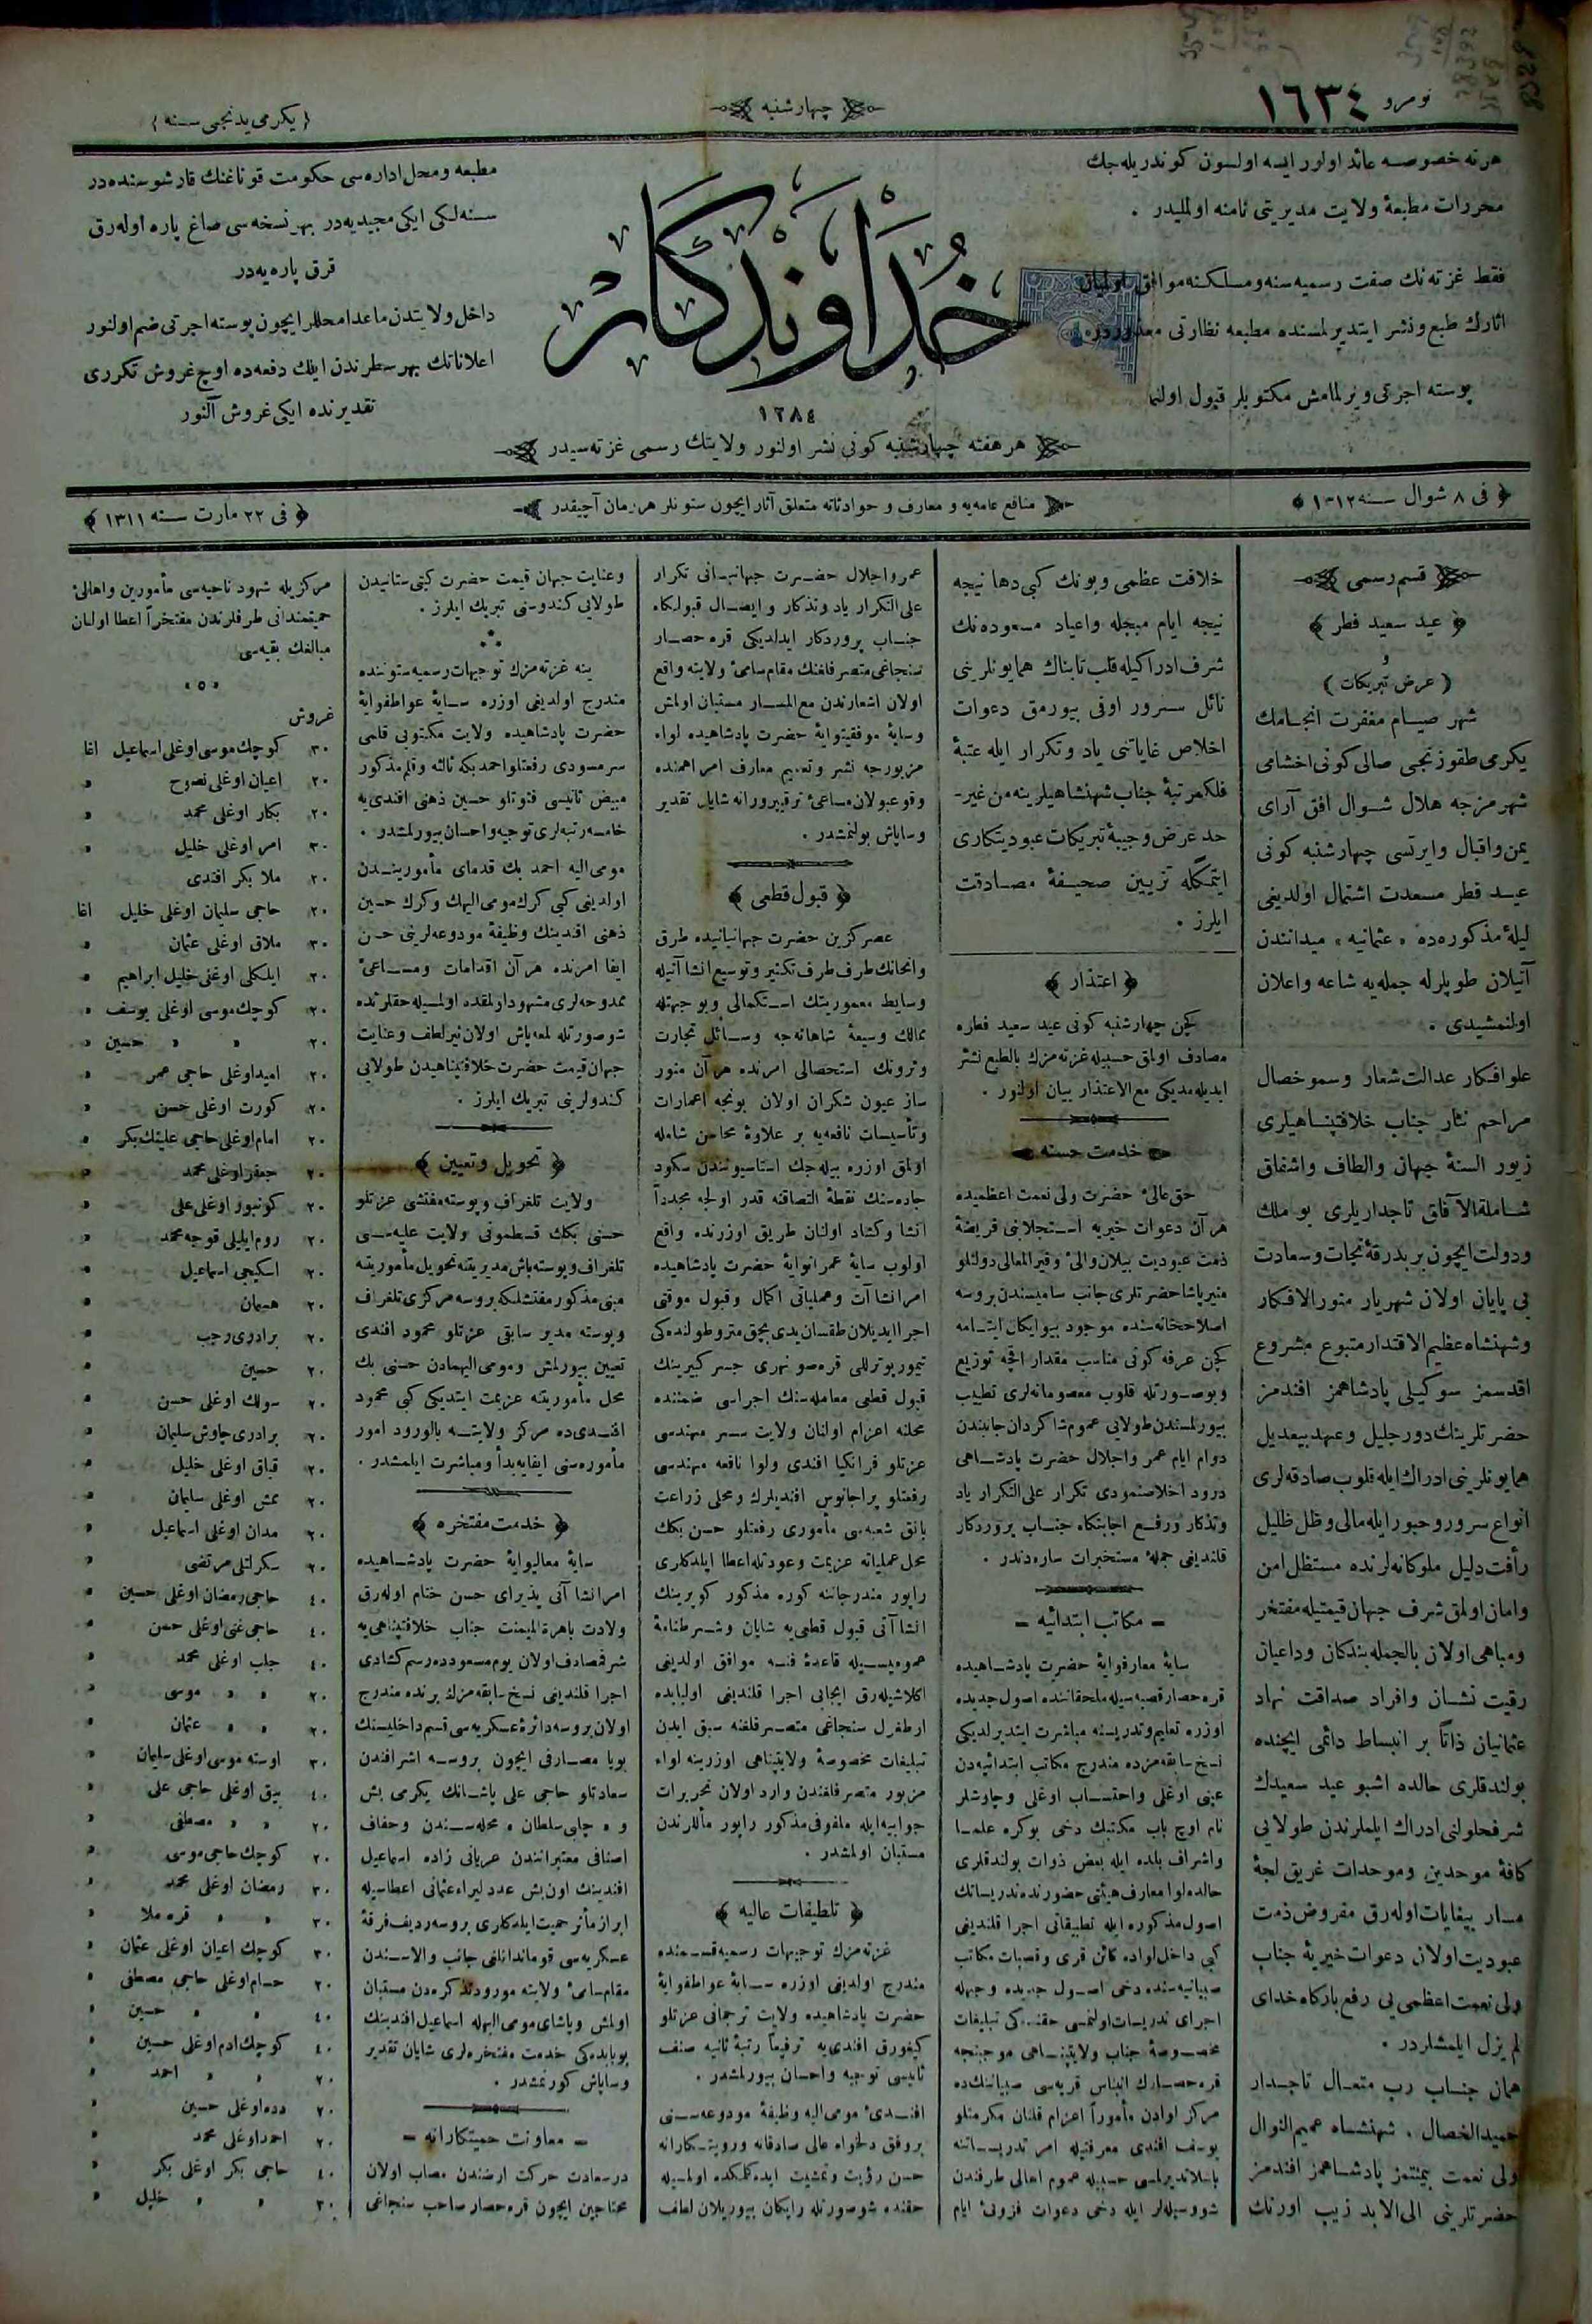 نومرو ١٦٣٤
چهارشنبه
﴿ يكرمى يدنجى سنه ﴾
هر نه خصوصه عائد اولور ايسه اولسون كوندريله‌جك
محررات مطبعهٔ ولايت مديريتى نامنه اولمليدر .
فقط غزته‌نك صفت رسميه‌سنه و مسلكنه موافق اوليان
آثارك طبع و نشر ايتديرلمسنده مطبعه نظارتى معذوردر
پوسته اجرتى ويرلمامش مكتوبلر قبول اولنماز
خداوندكار
١٢٨٤
هر هفته چهارشنبه كونى نشر اولنور ولايتك رسمى غزته‌سيدر
مطبعه و محل اداره‌سى حكومت قوناغنك قارشوسنده‌در
سنه‌لكى ايكى مجيديه‌در بهر نسخه‌سى صاغ پاره اوله‌رق
قرق پاره‌يه‌در
داخل ولايتدن ماعدا محللر ايچون پوسته اجرتى ضم اولنور
اعلاناتك بهر سطرندن ايلك دفعه‌ده اوچ غروش تكررى
تقديرنده ايكى غروش آلنور
﴿ فى ٨ شوال سنه ١٣١٢ ﴾
منافع عامه‌يه و معارف و حوادثاته متعلق آثار ايچون ستونلر هر زمان آچيقدر
﴿ فى ٢٢ مارت سنه ١٣١١ ﴾
قسم رسمى
﴿ عيد سعيد فطر ﴾
و
( عرض تبريكات )
شهر صيام مغفرت انجامك
يكرمى طقوزنجى صالى كونى اخشامى
شهرمزجه هلال شوال افق آراى
يمن و اقبال و ايرتسى چهارشنبه كونى
عيد فطر مسعدت اشتمال اولديغى
ليلهٔ مذكوره‌ده « عثمانيه » ميدانندن
آتيلان طوپلرله جمله‌يه اشاعه و اعلان
اولنمشيدى .
علو افكار عدالت شعار و سمو خصال
مراحم نثار جناب خلافتپناهيلرى
زيور السنهٔ جهان و الطاف و اشفاق
شاملة الآفاق تاجداريلرى بو ملك
و دولت ايچون بر بدرقهٔ نجات و سعادت
بى پايان اولان شهريار منور الافكار
و شهنشاه عظيم الاقتدار متبوع مشروع
اقدسمز سوكيلى پادشاهمز افندمز
حضرتلرينك دور جليل و عهد بيعديل
همايونلرينى ادراك ايله قلوب صادقه‌لرى
انواع سرور و حبور ايله مالى و ظل ظليل
رأفت دليل ملوكانه‌لرنده مستظل امن
و امان اولمق شرف جهان قيمتيله مفتخر
و مباهى اولان بالجمله بندكان و داعيان
رقيت نشان و افراد صداقت نهاد
عثمانيان ذاتاً بر انبساط دائمى ايچنده
بولندقلرى حالده اشبو عيد سعيدك
شرفحلولنى ادراك ايلملرندن طولايى
كافهٔ موحدين و موحدات غريق لجهٔ
مسار بيغايات اوله‌رق مفروض ذمت
عبوديت اولان دعوات خيريهٔ جناب
ولى نعمت اعظمى بى رفع باركاه خداى
لم يزل ايلمشلردر .
همان جناب رب متعال تاجدار
حميد الخصال ، شهنشاه عميم النوال
ولى نعمت بيمنتمز پادشاهمز افندمز
حضرتلرينى الى الابد زيب اورنك
خلافت عظمى و بونك كبى دها نيجه
نيجه ايام مبجله و اعياد مسعوده‌نك
شرف ادراكيله قلب تابناك همايونلرينى
نائل سرور اوفى بيورمق دعوات
اخلاص غاياتنى ياد و تكرار ايله عتبهٔ
فلكمرتبهٔ جناب شهنشاهيلرينه من غير
حد عرض وجيبهٔ تبريكات عبوديتكارى
ايتمكله تزيين صحيفهٔ مصادقت
ايلرز .
﴿ اعتذار ﴾
كچن چهارشنبه كونى عيد سعيد فطره
مصادف اولمق حسبيله غزته‌مزك بالطبع نشر
ايديله‌مديكى مع الاعتذار بيان اولنور .
خدمت حسنه
حق عالىٔ حضرت ولى نعمت اعظميده
هر آن دعوات خيريه استجلابنى فريضهٔ
ذمت عبوديت بيلان والىٔ وقير المعالى دولتلو
منير پاشا حضرتلرى جانب ساميسندن بروسه
اصلاحخانه‌سنده موجود بيوايكان ايتامه
كچن عرفه كونى مناسب مقدار اقچه توزيع
و بوصورتله قلوب معصومانه‌لرى تطييب
بيورلمسندن طولايى عموم شاكردان جانبندن
دوام ايام عمر و اجلال حضرت پادشاهى
درود اخلاصنمودى تكرار على التكرار ياد
و تذكار و رفع اجابتكاه جناب پروردكار
قلنديغى جملهٔ مستخبرات ساره‌دندر .
— مكاتب ابتدائيه —
سايهٔ معارفوايهٔ حضرت پادشاهيده
قره حصار قصبه‌سيله ملحقاتنده اصول جديده
اوزره تعليم و تدريسنه مباشرت ايتديرلديكى
نسخ سابقه‌مزده مندرج مكاتب ابتدائيه‌دن
عينى اوغلى و احتساب اوغلى و چاوشلر
نام اوچ باب مكتبك دخى بوكره علما
و اشراف بلده ايله بعض ذوات بولندقلرى
حالده لوا معارف هيئتى حضورنده تدريساتك
اصول مذكوره ايله تطبيقاتى اجرا قلنديغى
كبى داخل لواده كائن قرى و قصبات مكاتب
صبيانيه‌سنده دخى اصول جديده وجهله
اجراى تدريسات اولنمسى حقنده‌كى تبليغات
مخصوصهٔ جناب ولايتپناهى موجبنجه
قره حصارك انبناس قريه‌سى صبياننك ده
مركز لوادن مأموراً اعزام قلنان مكرمتلو
يوسف افندى معرفتيله امر تدريساتنه
باشلانديرلمسى حسبيله عموم اهالى طرفندن
شو وسيله‌لر ايله دخى دعوات فزونىٔ ايام
عمر و اجلال حضرت جهانبانى تكرار
على التكرار ياد و تذكار و ايصال قبولكاه
جناب پروردكار ايدلديكى قره حصار
سنجاغى متصرفلغنك مقام سامىٔ ولايته واقع
اولان اشعارندن مع المسار مستبان اولمش
و سايهٔ موفقيتوايهٔ حضرت پادشاهيده لواء
مزبورجه نشر و تعميم معارف امر اهمنده
وقوعبولان مساعىٔ ترقيپرورانه شايان تقدير
و ساپاش بولنمشدر .
﴿ قبول قطعى ﴾
عصر كزين حضرت جهانبانيده طرق
و انحانك طرف طرف تكثير و توسيع انشاآتيله
وسايط معموريتك استكمالى و بو جهتله
ممالك وسيعهٔ شاهانه‌جه وسائل تجارت
و ثروتك استحصالى امرنده هر آن منور
ساز عيون شكران اولان بونجه اعمارات
و تأسيسات نافعه‌يه بر علاوهٔ محاسن شامله
اولمق اوزره بيله‌جك استاسيونندن سكود
جاده‌سنك نقطهٔ التصاقنه قدر اولجه مجدداً
انشا و كشاد اولنان طريق اوزرنده واقع
اولوب سايهٔ عمرانوايهٔ حضرت پادشاهيده
امر انشاآت و عملياتى اكمال و قبول موقتى
اجرا ايديلان طقسان يدى بچق مترو طولنده‌كى
تيمور پوترللى قره صو نهرى جسر كبيرينك
قبول قطعى معامله‌سنك اجراسى ضمننده
محلنه اعزام اولنان ولايت سر مهندسى
عزتلو فرانكيا افندى و لوا نافعه مهندسى
رفعتلو پراجانوس افنديلرك و محلى زراعت
بانق شعبه‌سى مأمورى رفعتلو حسن بكك
محل عملياته عزيمت و عودتله اعطا ايلدكلرى
راپور مندرجاتنه كوره مذكور كوپرينك
انشاآتى قبول قطعى‌يه شايان و شرطنامهٔ
عموميسيله قاعدهٔ فنيه موافق اولديغى
اكلاشيله‌رق ايجابى اجرا قلنديغى اولبابده
ارطغرل سنجاغى متصرفلغنه سبق ايدن
تبليغات مخصوصهٔ ولايتپناهى اوزرينه لواء
مزبور متصرفلغندن وارد اولان تحريرات
جوابيه ايله ملفوفى مذكور راپور مأللرندن
مستبان اولمشدر .
﴿ تلطيفات عاليه ﴾
غزته‌مزك توجيهات رسميه قسمنده
مندرج اولديغى اوزره سايهٔ عواطفوايهٔ
حضرت پادشاهيده ولايت ترجمانى عزتلو
كيفورق افندى‌يه ترفيعاً رتبهٔ ثانيه صنف
ثانيسى توجيه و احسان بيورلمشدر .
افندىٔ مومى اليه وظيفهٔ مودوعه‌سنى
بر وفق دلخواه عالى صادقانه و رويتكارانه
حسن رؤيت و تمشيت ايده‌كلمكده اولمسيله
حقنده شو صورتله رايكان بيوريلان لطف
و عنايت جهان قيمت حضرت كيتى ستانيدن
طولايى كندوسنى تبريك ايلرز .
ينه غزته‌مزك توجيهات رسميه ستوننده
مندرج اولديغى اوزره سايهٔ عواطفوايهٔ
حضرت پادشاهيده ولايت مكتوبى قلمى
سرمسودى رفعتلو احمد بكه ثالثه و قلم مذكور
مبيض ثانيسى فتوتلو حسين ذهنى افندى‌يه
خامسه رتبه‌لرى توجيه و احسان بيورلمشدر .
مومى اليه احمد بك قدماى مأموريندن
اولديغى كبى كرك مومى اليهك و كرك حسين
ذهنى افندينك وظيفهٔ مودوعه‌لرينى حسن
ايفا امرنده هر آن اقدامات و مساعىٔ
ممدوحه‌لرى مشهود اولمقده اولمسيله حقلرنده
شو صورتله لمعه‌پاش اولان نير لطف و عنايت
جهان قيمت حضرت خلافتپناهيدن طولايى
كندولرينى تبريك ايلرز .
﴿ تحويل و تعيين ﴾
ولايت تلغراف و پوسته مفتشى عزتلو
حسنى بكك قسطمونى ولايت عليه‌سى
تلغراف و پوسته باش مديريتنه تحويل مأموريتنه
مبنى مذكور مفتشلكه بروسه مركزى تلغراف
و پوسته مدير سابقى عزتلو محمود افندى
تعيين بيورلمش و مومى اليهمادن حسنى بك
محل مأموريتنه عزيمت ايتديكى كبى محمود
افندى ده مركز ولايته بالورود امور
مأموره‌سنى ايفايه بدأ و مباشرت ايلمشدر .
﴿ خدمت مفتخره ﴾
سايهٔ معاليوايهٔ حضرت پادشاهيده
امر انشاآتى پذيراى حسن ختام اوله‌رق
ولادت باهرة الميمنت جناب خلافتپناهى‌يه
شرفمصادف اولان يوم مسعودده رسم كشادى
اجرا قلنديغى نسخ سابقه‌مزك برنده مندرج
اولان بروسه دائرهٔ عسكريه‌سى قسم داخليسنك
بويا مصارفى ايچون بروسه اشرافندن
سعادتلو حاجى على پاشانك يكرمى بش
و « چلبى سلطان » محله‌سندن و خفاف
اصنافى معتبرانندن عربانى زاده اسماعيل
افندينك اون بش عدد ليراء عثمانى اعطاسيله
ابراز مآثر حميت ايلدكلرى بروسه رديف فرقهٔ
عسكريه‌سى قوماندانلغى جانب والاسندن
مقام سامىٔ ولايته مورود تذكره‌دن مستبان
اولمش و پاشاى مومى اليهله اسماعيل افندينك
بوبابده‌كى خدمت مفتخره‌لرى شايان تقدير
و ساپاش كورنمشدر .
— معاونت حميتكارانه —
در سعادت حركت ارضندن مصاب اولان
محتاجين ايچون قره حصار صاحب سنجاغى
مركزيله شهود ناحيه‌سى مأمورين و اهالىٔ
حميتمندانى طرفلرندن مفتخراً اعطا اولنان
مبالغك بقيه‌سى
« ٥ »
غروش
٣٠ كوچك موسى اوغلى اسماعيل اغا
٢٠ اعيان اوغلى نصوح »
٢٠ بكار اوغلى محمد »
٣٠ امر اوغلى خليل »
٢٠ ملا بكر افندى
٢٠ حاجى سليمان اوغلى خليل اغا
٣٠ ملاق اوغلى عثمان »
٢٠ ايلكلى اوغلى خليل ابراهيم »
٢٠ كوچك موسى اوغلى يوسف »
٢٠ » » حسين »
٢٠ اميد اوغلى حاجى عمر »
٢٠ كورت اوغلى حسن »
٢٠ امام اوغلى حاجى علينك بكر »
٢٠ جعفر اوغلى محمد »
٢٠ كونبور اوغلى على »
٢٠ روم ايليلى قوجه محمد »
٢٠ اسكيجى اسماعيل »
٢٠ همان »
٢٠ برادرى رجب »
٢٠ حسين »
٢٠ سولك اوغلى حسن »
٢٠ برادرى چاوش سليمان »
٢٠ قباق اوغلى خليل »
٢٠ ممش اوغلى سليمان »
٢٠ مدان اوغلى اسماعيل »
٢٠ سكرلتلى مرتضى »
٤٠ حاجى رمضان اوغلى حسين »
٤٠ حاجى غنى اوغلى حسن »
٤٠ جلب اوغلى محمد »
٢٠ » » موسى »
٢٠ » » عثمان »
٣٠ اوسته موسى اوغلى سليمان »
٤٠ بيق اوغلى حاجى على »
٢٠ » » مصطفى »
٢٠ كوچك حاجى موسى »
٣٠ رمضان اوغلى محمد »
٣٠ » » قره ملا »
٣٠ كوچك اعيان اوغلى عثمان »
٢٠ حسام اوغلى حاجى مصطفى »
٤٠ » » حسين »
٤٠ كوچك ادم اوغلى حسين »
٢٠ » » احمد »
٢٠ دده اوغلى حسين »
٢٠ احمد اوغلى محمد »
٤٠ حاجى بكر اوغلى بكر »
٣٠ » » خليل »